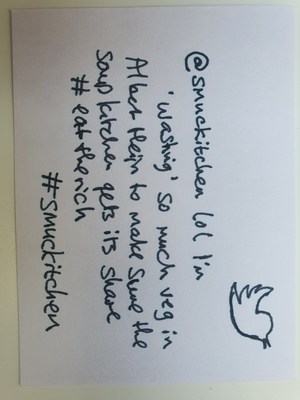 @smuckitchen lol I'm
'washing' so much veg in
Albert Heijn to make sure the
soup kitchen gets its share
#eattherich
#smuckitchen